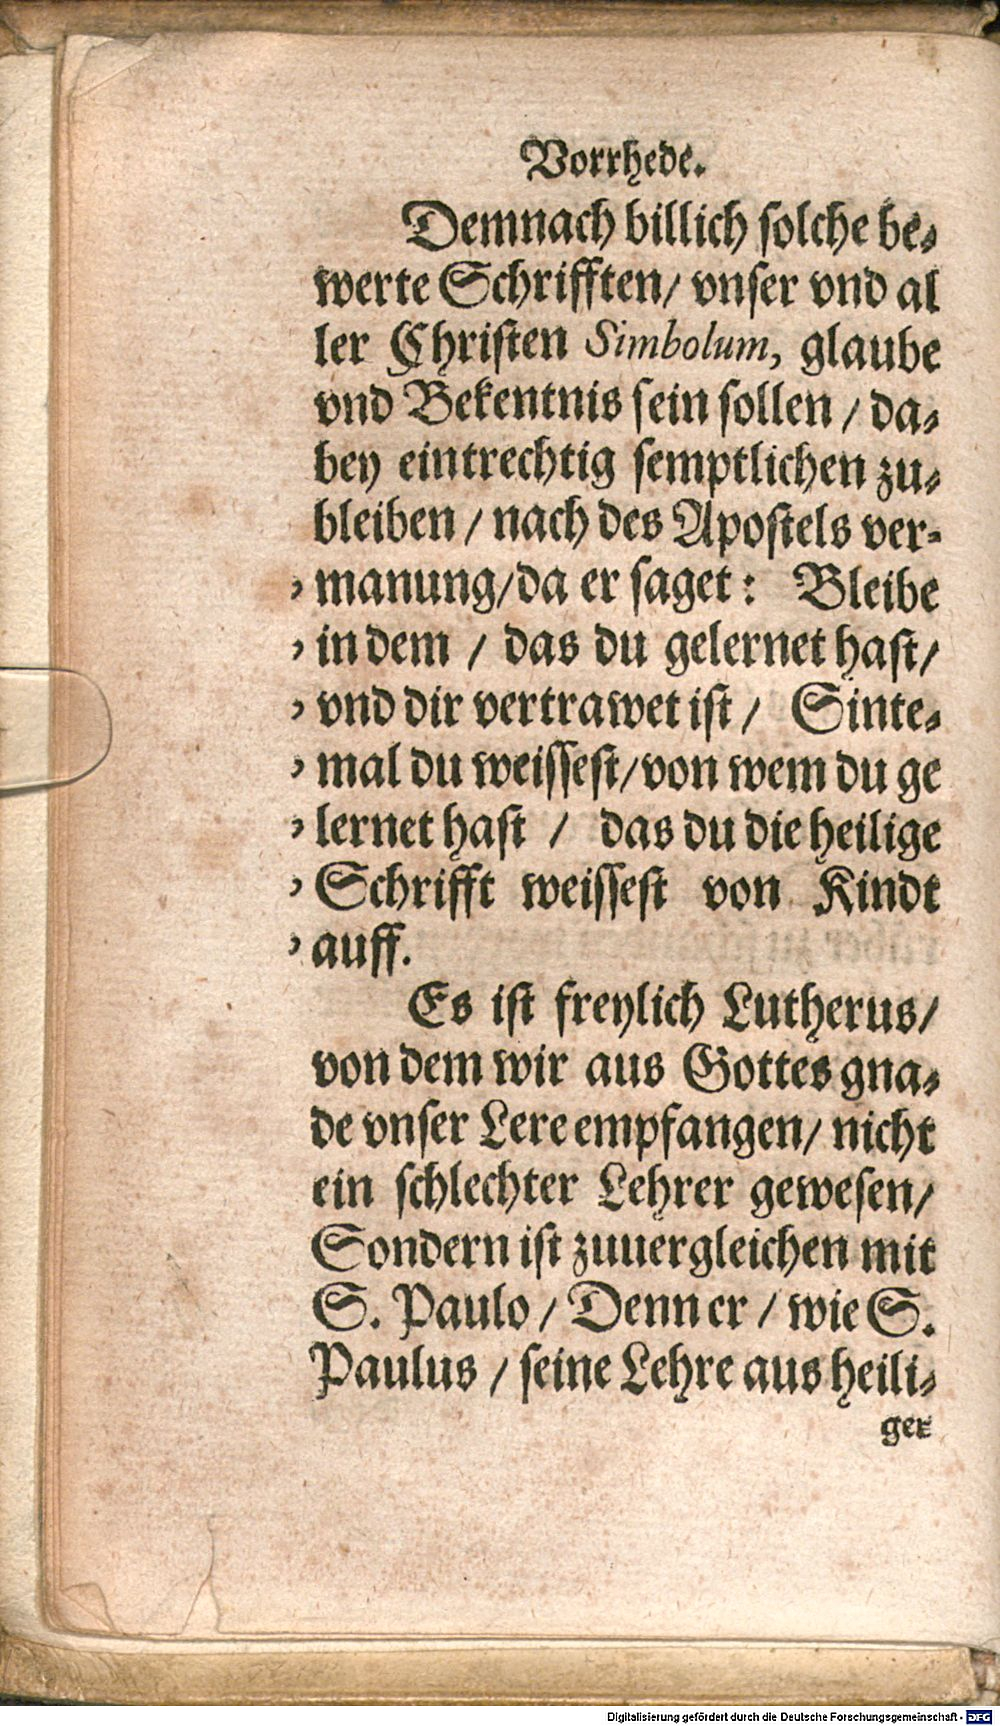 Vorrhede.
Demnach billich solche be-
werte Schrifften/ vnser vnd al
ler Christen Simbolum, glaube
vnd Bekentnis sein sollen / da-
bey eintrechtig semptlichen zu-
bleiben / nach des Apostels ver-
manung/da er saget : Bleibe
in dem / das du gelernet hast/
vnd dir vertrawet ist / Sinte-
mal du weissest/von wem du ge
lernet hast / das du die heilige
Schrifft weissest von Kindt
auff.
Es ist freylich Lutherus/
von dem wir aus Gottes gna-
de vnser Lere empfangen/ nicht
ein schlechter Lehrer gewesen/
Sondern ist zuuergleichen mit
S. Paulo / Denn er / wie S.
Paulus / seine Lehre aus heili-
ger
Digitalisierung gefördert durch die Deutsche Forschungsgemeinschaft - DFG